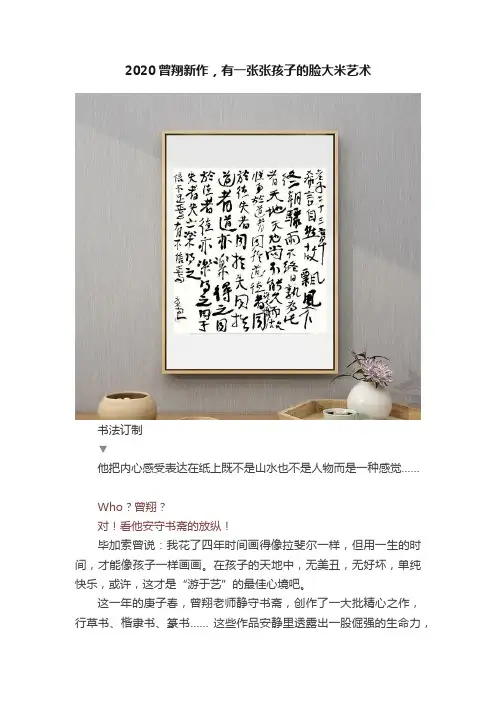 2020曾翔新作，有一张张孩子的脸大米艺术
老子二十三章
希言自然故飄風不
終朝驟雨不終日孰為此
者天地天地尚不能久而
從事於道者同於道德者同
於德失者同於失同於
道者道亦樂得之同
於德者德亦樂得之同于
失者失亦樂得之
信不足焉有不信焉
书法订制
▼
他把内心感受表达在纸上既不是山水也不是人物而是一种感觉……
Who？曾翔？
对！看他安守书斋的放纵！
毕加索曾说：我花了四年时间画得像拉斐尔一样，但用一生的时
间，才能像孩子一样画画。在孩子的天地中，无美丑，无好坏，单纯
快乐，或许，这才是“游于艺”的最佳心境吧。
这一年的庚子春，曾翔老师静守书斋，创作了一大批精心之作，
行草书、楷隶书、篆书…… 这些作品安静里透露出一股倔强的生命力，